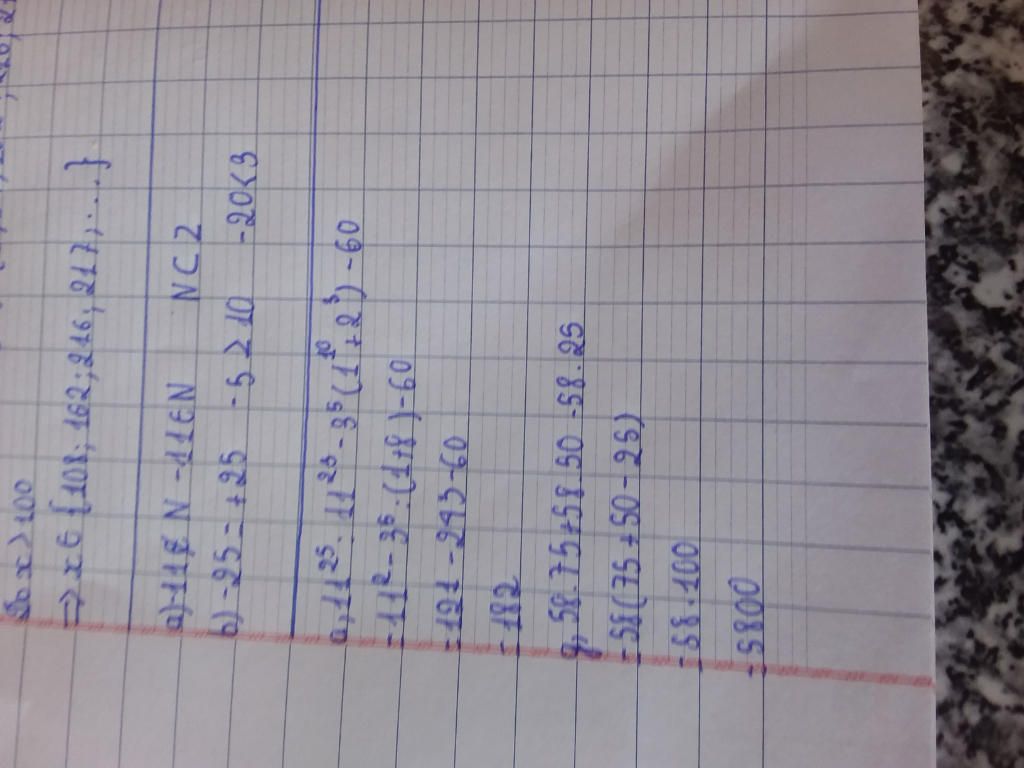 Do x > 100
=> x ∈ {108; 162; 216; 217; ....}
a) -11 ∉ N -11 ∈ N N ⊂ Z
b) -25 = +25 -5 > 10 -20 < 3
a, 11²⁵ . 11²³ - 3⁵ (1¹⁰ + 2³) - 60
= 11² - 3⁵ : (1+8) - 60
= 121 - 243 - 60
= 182
g, 58.75 + 58.50 - 58.25
= 58 (75 + 50 - 25)
= 58 . 100
= 5800